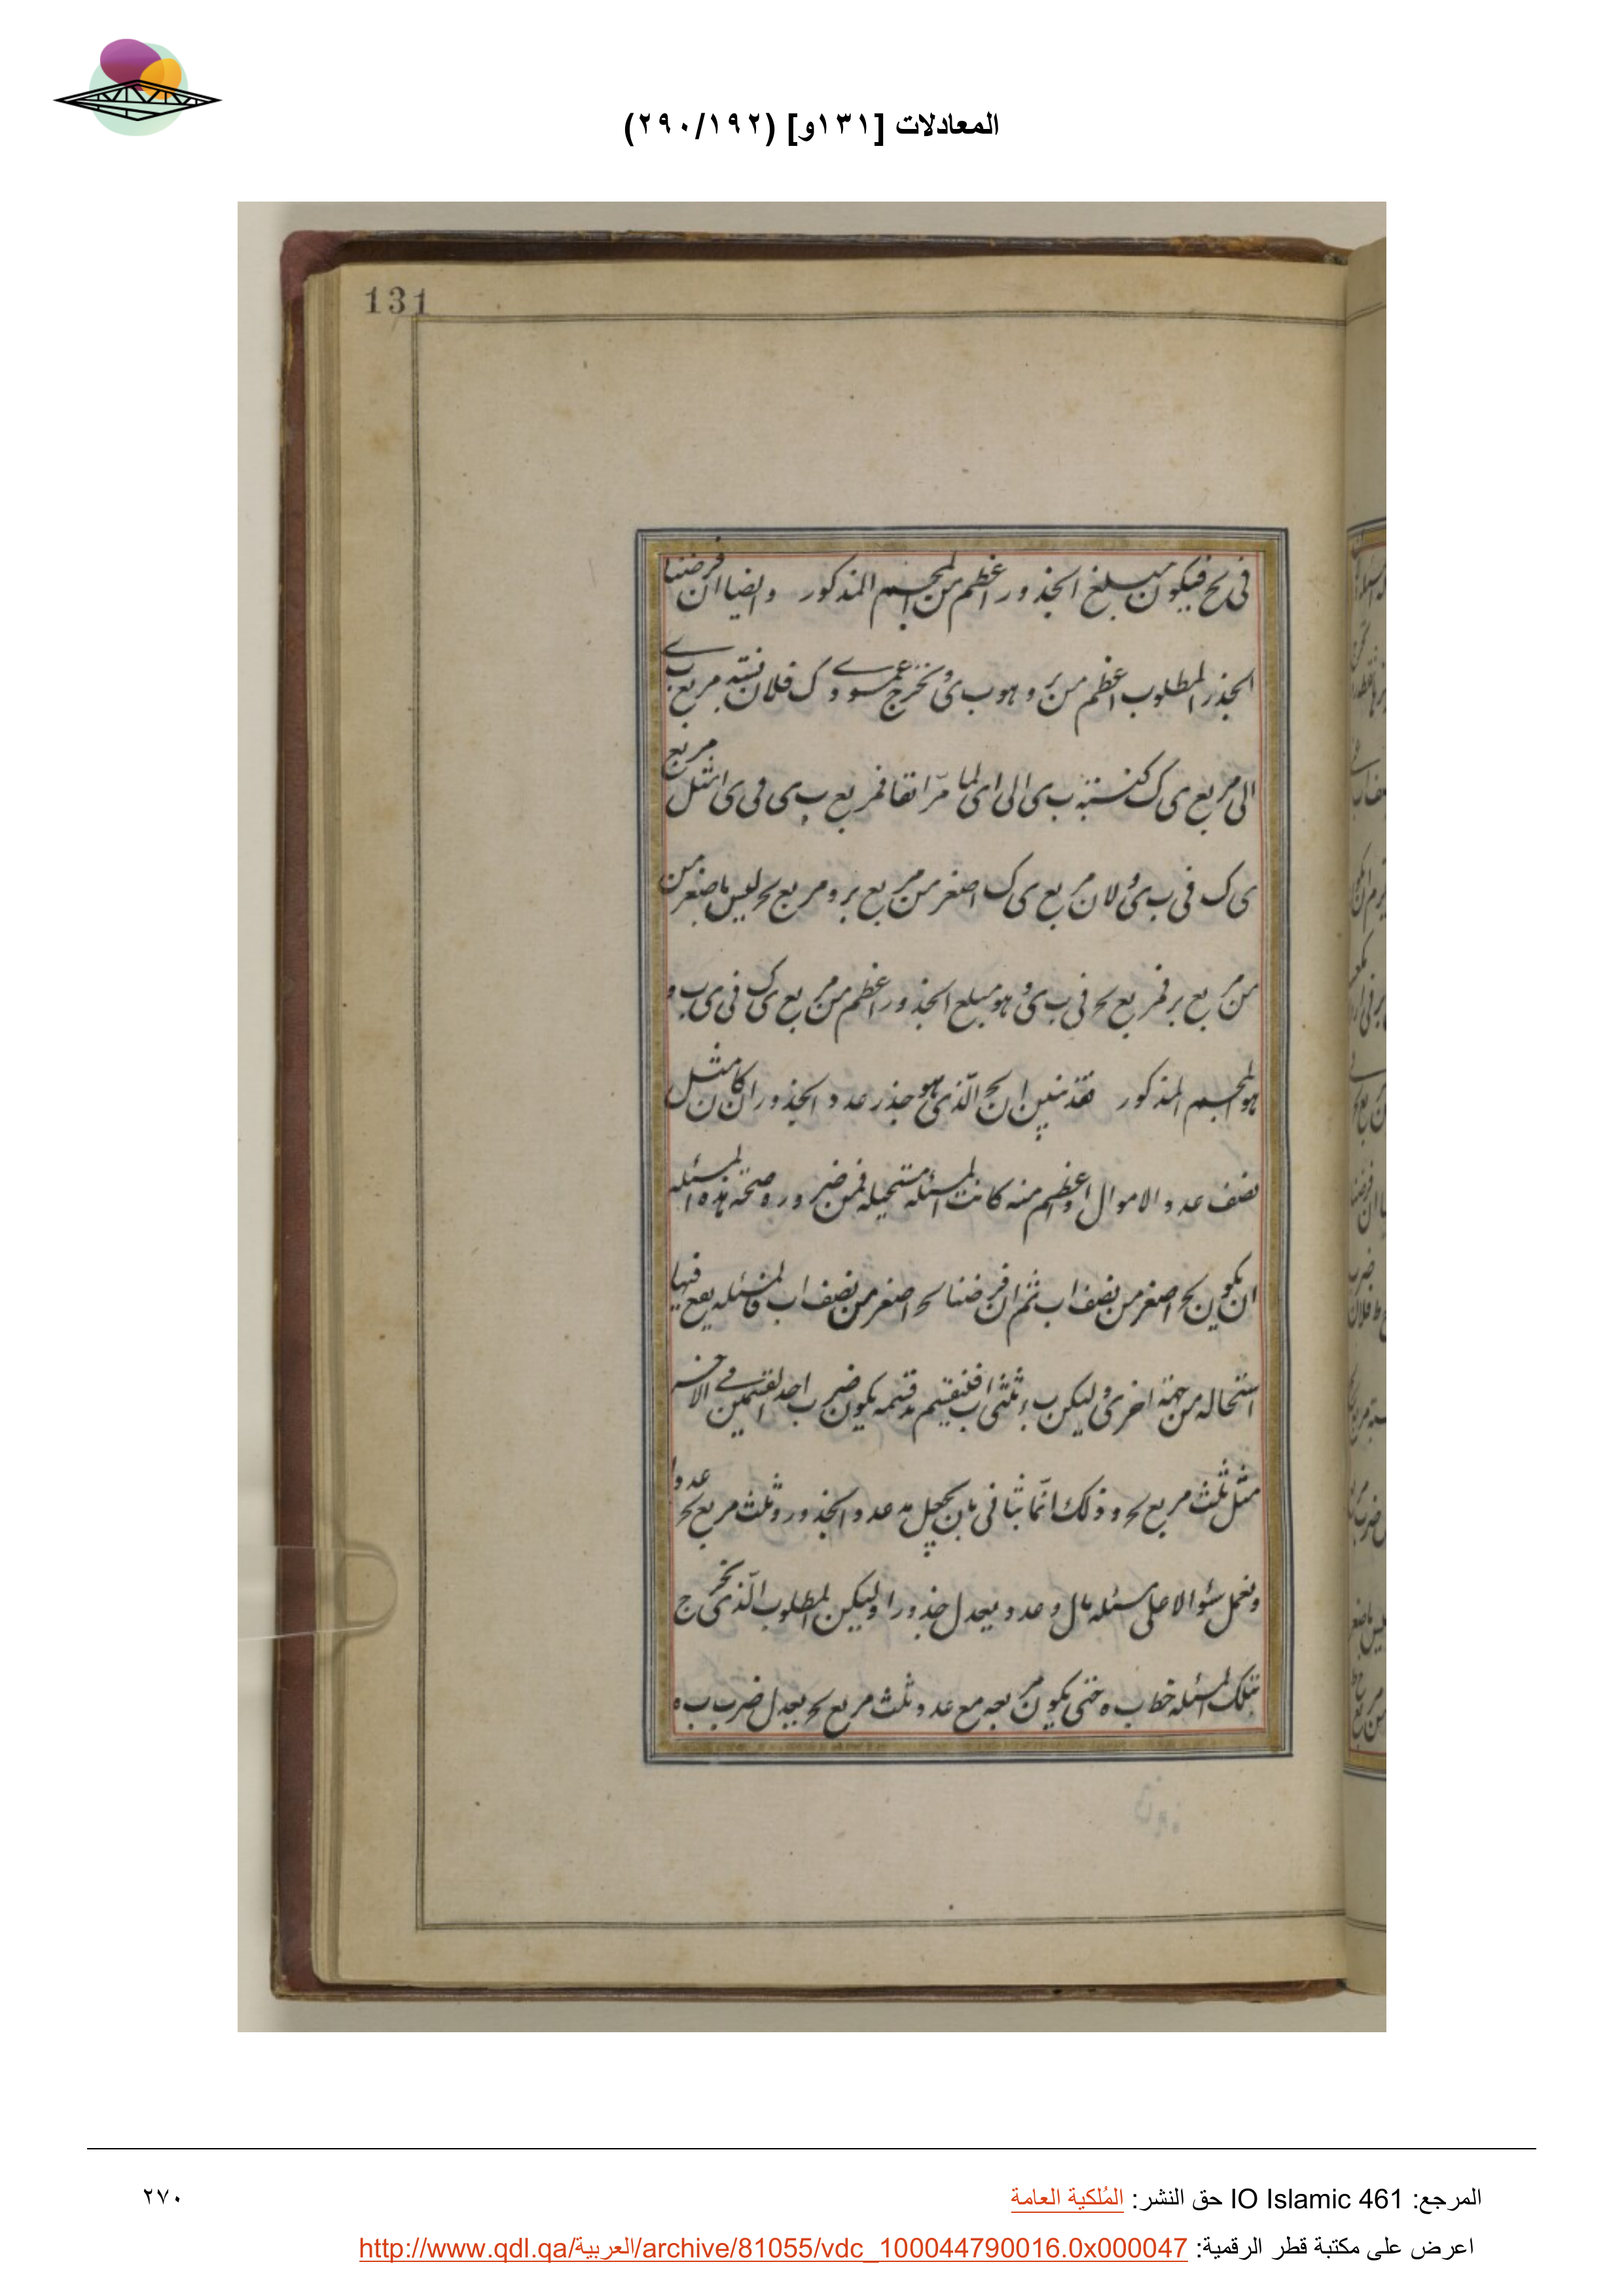 المعادلات [١٣١و] (٢٩٠/١٩٢)
131
فى بح فيكون مبلغ الجذور اعظم من المجسم المذكور وايضا ان فرضنا
الجذر المطلوب اعظم من بر وهو ب ى ونخرج عمود ى ك فلان نسبة مربع ب ى
الى مربع ى ك كنسبة ب ى الى اى لما مر آنفا فمربع ب ى فى ى ا مثل مربع
ى ك فى ب ى ولان مربع ى ك اصغر من مربع بر ومربع بح ليس باصغر من
من مربع بر فمربع بح فى ب ى وهو مبلغ الجذور اعظم من مربع ى ك فى ى ب و
هو المجسم المذكور فقد تبين ان بح الذى هو جذر عدد الجذور ان كان مثل
نصف عدد الاموال واعظم منه كانت المسئله مستحيله فمن ضرورة صحة هذه المسئله
ان يكون بح اصغر من نصف اب ثم ان فرضنا بح اصغر من نصف اب فالمسئله يقع فيها
استحاله من جهة اخرى وليكن ب ء ثلثى اب فنقسم قسمه يكون ضرب احد القسمين فى الاخر
مثل ثلث مربع بح وذلك انما يتأتى بان يجعل عدد الجذور وثلث مربع بح عددا
ونعمل سؤالا على مسئله مال وعدد يعدل جذورا وليكن المطلوب الذى يخرج
بتلك المسئله خط ب ه حتى يكون مربعه مع عدد ثلث مربع بح يعدل ضرب ب ه
٢٧٠
المرجع: IO Islamic 461 حق النشر: المُلكية العامة
اعرض على مكتبة قطر الرقمية: http://www.qdl.qa/العربية/archive/81055/vdc_100044790016.0x000047